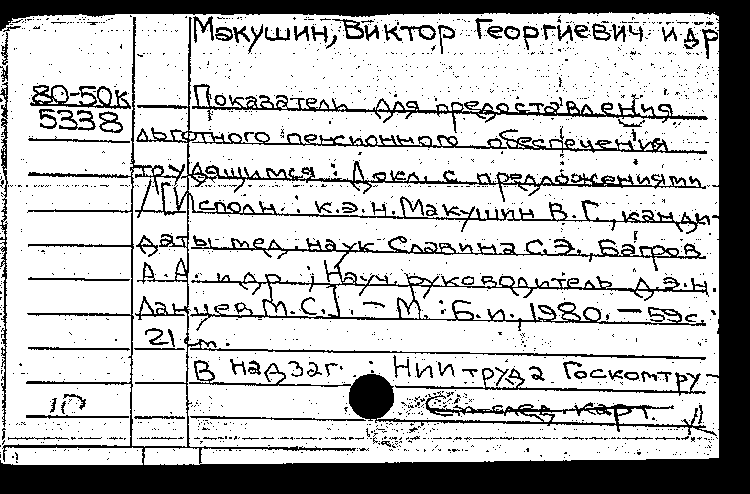 Макушин, Виктор Георгиевич и др
80-50к
5338
Показатель для предоставления
льготного пенсионного обеспечения
трудящимся : Докл. с предложениями
/ [Исполн. : к.э.н. Макушин В.Г., канди-
даты мед. наук Славина С.Э., Багров
А.А. и др. ; Науч. руководитель д.э.н.
Ланцев М.С.]. - М. : Б.и., 1980. - 59с. :
21 см.
В надзаг. : НИИ труда Госкомтру-
См. след. карт.